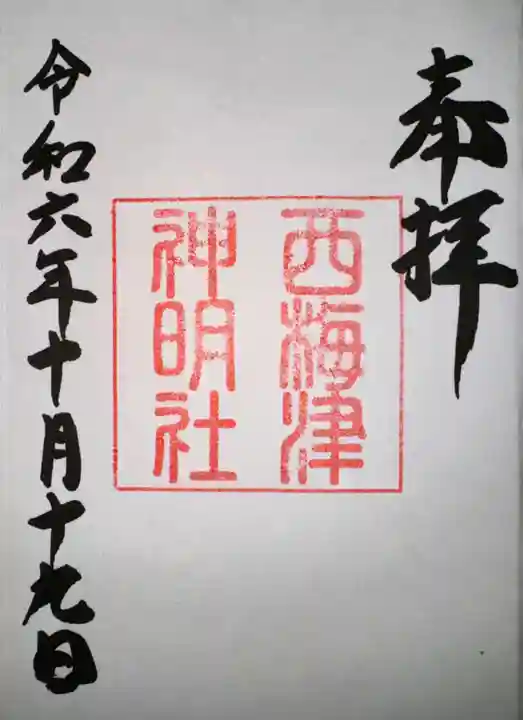 奉拝
西梅津
神明社
令和六年十月十九日